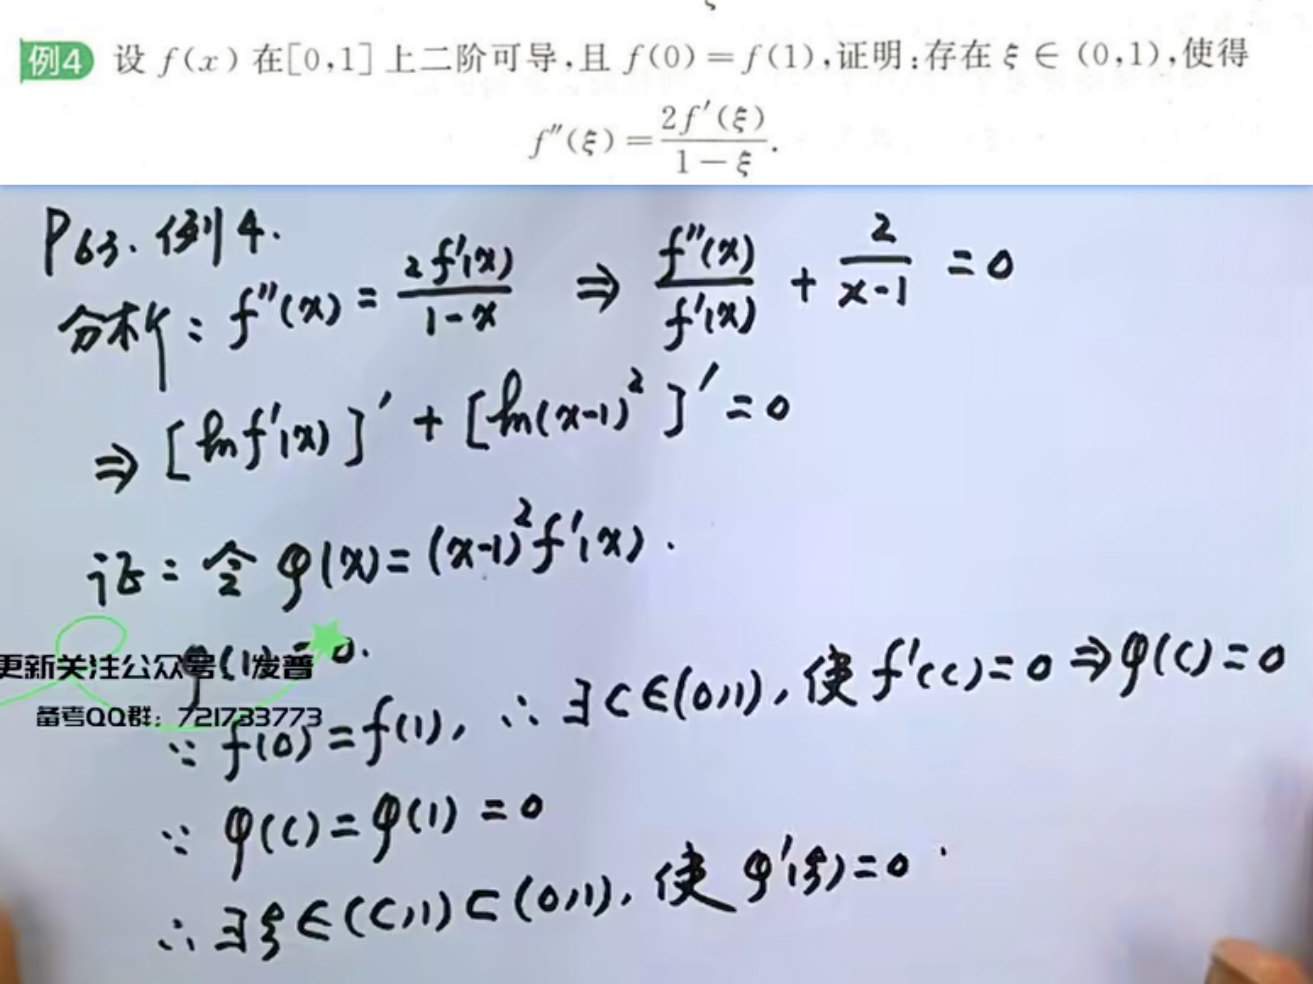 例4 设 f(x) 在[0,1]上二阶可导,且 f(0)=f(1),证明:存在 ξ∈(0,1),使得
f''(ξ)=\frac{2f'(ξ)}{1-ξ}.
P63. 例4.
分析: f''(x)=\frac{2f'(x)}{1-x} ⇒ \frac{f''(x)}{f'(x)}+\frac{2}{x-1}=0
⇒ [ln f'(x)]'+[ln(x-1)^2]'=0
证: 令 φ(x)=(x-1)^2f'(x).
φ(1)=0.
更新关注公众号:发普
备考QQ群: 721733773
∵ f(0)=f(1), ∴ ∃c∈(0,1), 使 f'(c)=0 ⇒ φ(c)=0
∵ φ(c)=φ(1)=0
∴ ∃ξ∈(c,1)⊂(0,1), 使 φ'(ξ)=0.